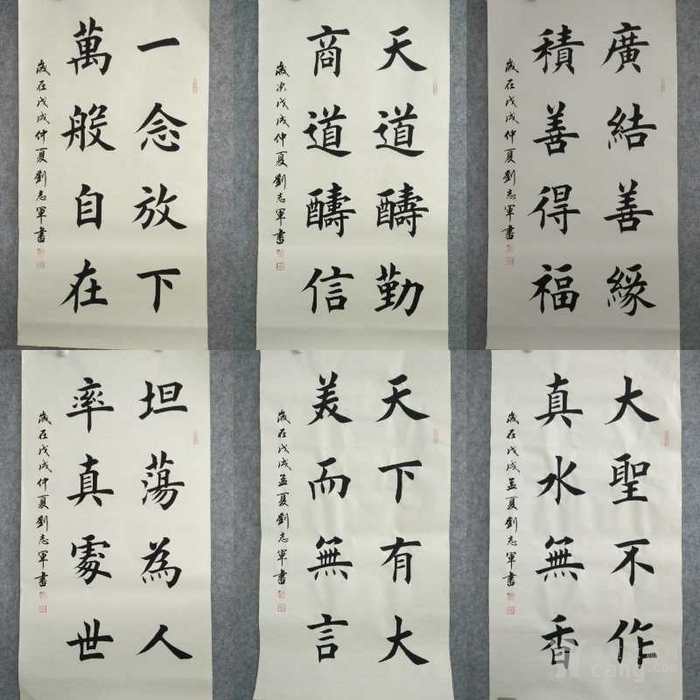 一念放下
萬般自在
歲在戊戌仲夏劉志軍書
天道酬勤
商道酬信
歲次戊戌仲夏劉志軍書
廣結善緣
積善得福
歲在戊戌仲夏劉志軍書
坦蕩為人
率真處世
歲在戊戌仲夏劉志軍書
天下有大
美而無言
歲在戊戌孟夏劉志軍書
大聖不作
真水無香
歲在戊戌孟夏劉志軍書